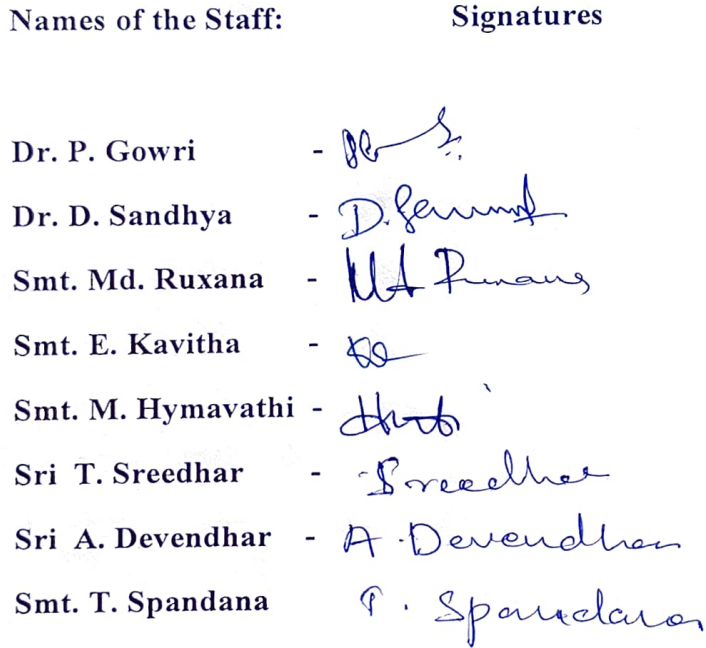 Names of the Staff: Signatures
Dr. P. Gowri -
Dr. D. Sandhya - D.
Smt. Md. Ruxana - Md
Smt. E. Kavitha -
Smt. M. Hymavathi -
Sri T. Sreedhar - Sreedhar
Sri A. Devendhar - A. Devendhar
Smt. T. Spandana T. Spandana